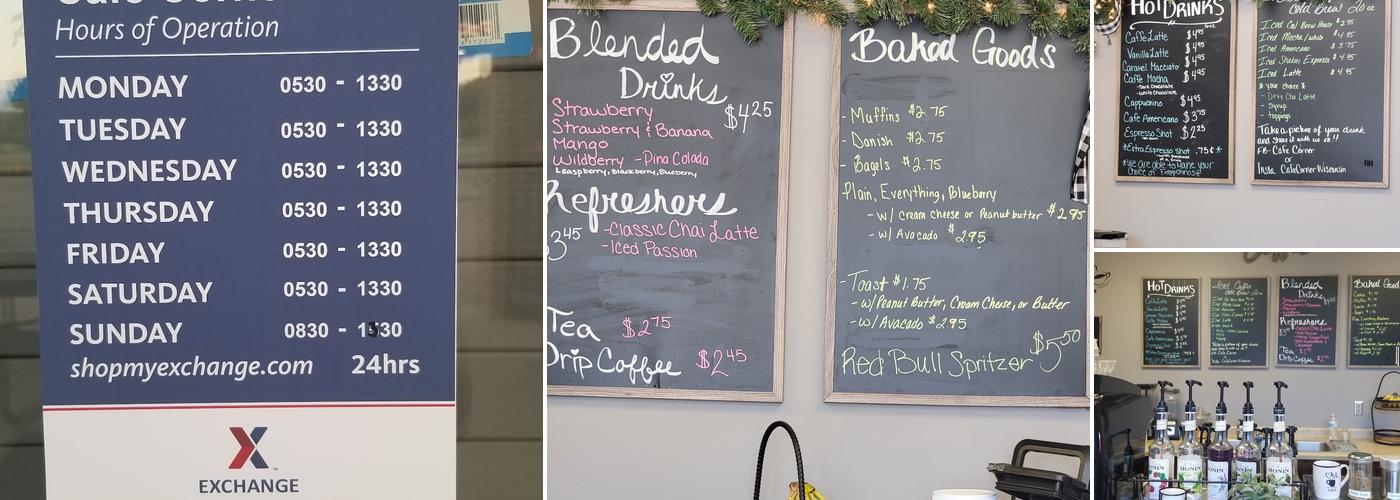 Hours of Operation
MONDAY 0530 - 1330
TUESDAY 0530 - 1330
WEDNESDAY 0530 - 1330
THURSDAY 0530 - 1330
FRIDAY 0530 - 1330
SATURDAY 0530 - 1330
SUNDAY 0830 - 1530
shopmyexchange.com 24hrs
EXCHANGE
Blended
Drinks
$4.25
Strawberry
Strawberry & Banana
Mango
Wildberry - Pina Colada
(Raspberry, Blackberry, Blueberry
Refreshers
3.45 - Classic Chai Latte
- Iced Passion
Tea $2.75
Drip Coffee $2.45
Baked Goods
- Muffins $2.75
- Danish $2.75
- Bagels $2.75
Plain, Everything, Blueberry
- w/ cream cheese or Peanut butter $2.95
- w/ Avocado $2.95
- Toast $1.75
- w/ Peanut Butter, Cream Cheese, or Butter
- w/ Avacado $2.95
Red Bull Spritzer $5.50
HOT DRINKS
Caffe Latte $4.95
Vanilla Latte $4.95
Caramel Macciato $4.95
Caffe Mocha $4.95
- Dark Chocolate
- White Chocolate
Cappuccino $4.95
Cafe Americano $3.75
Espresso Shot $2.25
*Extra Espresso Shot .75¢*
*We are able to make your
choice of Frappachinos!*
Cold Brew 20 oz
Iced Mocha/white $4.95
Iced Americano $3.75
Iced Shakin Espresso $4.95
Iced Latte $4.95
* your choice *
- Dirty Chai Latte
- Syrup
- Toppings
Take a picture of your drink
and show it with us!!
FB- Cafe Corner
or
Insta CafeCornerWisconsin
HOT DRINKS
Iced Coffee
Cold Brew 20 oz
Blended
Drinks
Refreshers
Tea
Drip Coffee
Baked Good
MONIN
MONIN
MONIN
MONIN